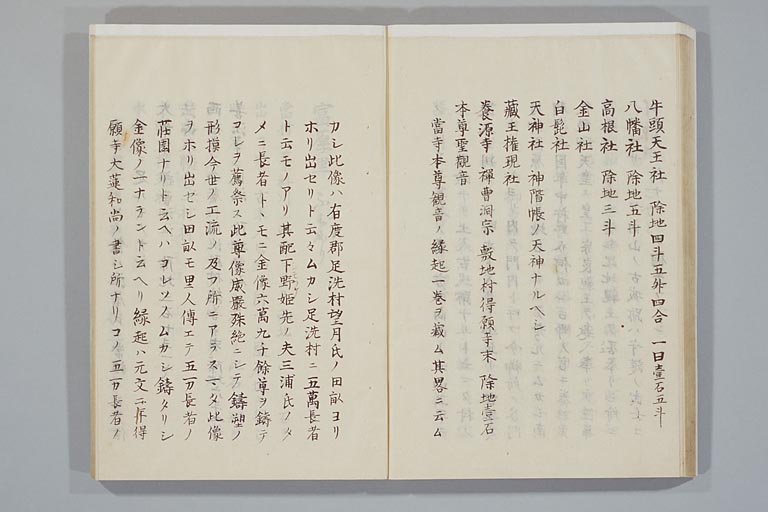 牛頭天王社 除地四斗五升四合 一曰壹石五斗
八幡社 除地五斗
高根社 除地三斗
金山社
白髭社
天神社 神階帳ノ天神ナルヘシ
藏王権現社
養源寺 禅曹洞宗 敷地村得願寺末 除地壹石
本尊聖觀音
當寺本尊觀音ノ縁起一巻ヲ藏ム其畧ニ云ム
カシ此像ハ有度郡足洗村望月氏ノ田畝ヨリ
ホリ出セリト云々ムカシ足洗村ニ五萬長者
ト云モノアリ其配下野姫先ノ夫三浦氏ノタ
メニ長者トヽモニ金像六萬九千餘尊ヲ鑄テ
コレヲ薦祭ス此尊像威嚴殊絶ニシテ鑄塑ノ
形摸今世ノ工流ノ及フ所ニアラスマタ此像
ヲホリ出セシ田畝モ里人傳エテ五万長者ノ
莊園ナリト云ヘハコレソノムカシ鑄タリシ
金像ノ一ナラント云ヘリ縁起ハ元文二年得
願寺大蓮和尚ノ書シ所ナリコノ五万長者ノ